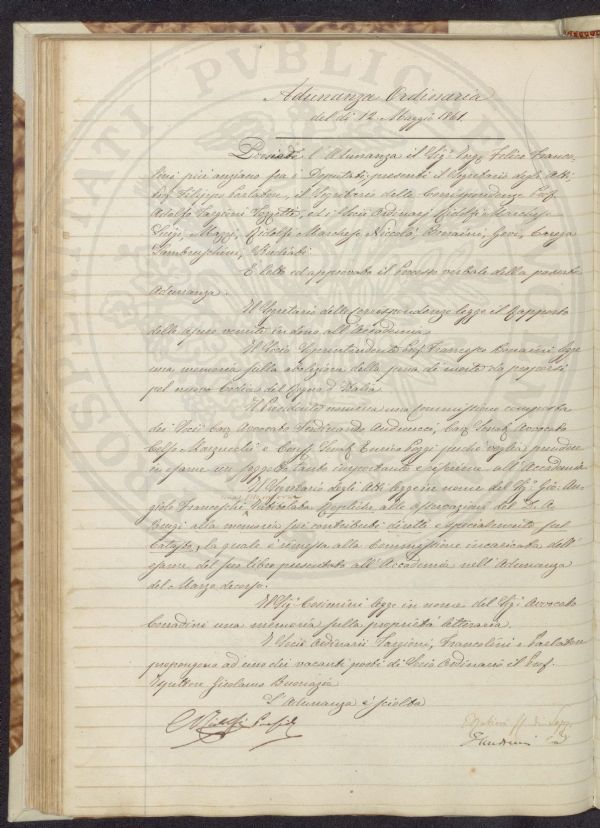 Adunanza Ordinaria
del dì 12 Maggio 1861
Presiede l'Adunanza il Sig. Felice Franco-
lini più anziano fra i Deputati; presenti il Segretario degli Atti
Filippo Parlatore, il Segretario delle Corrispondenze Prof.
Adolfo Targioni Tozzetti, ed i Socii Ordinarj Ridolfi Marchese
Luigi, Ridolfi Marchese Niccolò, Bonaini,
Lambruschini,
È letto ed approvato il Processo verbale della passata
Adunanza.
Il Segretario delle Corrispondenze legge il Rapporto
delle opere venute in dono all'Accademia.
Il Socio Soprintendente Prof. Francesco Bonaini legge
una memoria sulla abolizione della pena di morte da proporsi
pel nuovo Codice del Regno d'Italia.
Il Presidente nomina una Commissione composta
dei Socii Cav. Avvocato Ferdinando Andreucci, Cav. Avvocato
Celso Marzucchi e Enrico Poggi perchè voglia prendere
in esame un soggetto tanto importante e riferirne all'Accademia
Il Segretario degli Atti legge in nome del Sig. Gio. An-
giolo Franceschi una memoria intitolata Repliche alle osservazioni del
alla memoria sui contributi diretti e specialmente sul
Catasto, la quale è rimessa alla Commissione incaricata dell'
esame del suo libro presentato all'Accademia nell'Adunanza
del Marzo decorso.
Il Sig. Cosimini legge in nome del Sig. Avvocato
Corradini una memoria sulla proprietà letteraria.
I Socii Ordinarii Targioni, Francolini e Parlatore
propongono ad uno dei vacanti posti di Socio Ordinario il Prof.
Girolamo Buonazia
L'Adunanza è sciolta